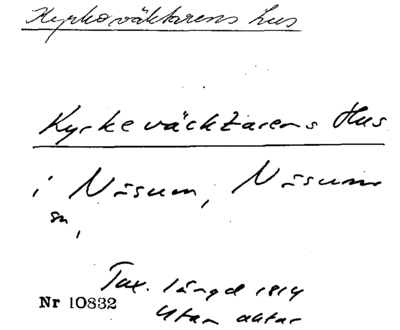 Kyrkoväktarens hus
Kyrkeväcktarens Hus
i Näsum, Näsum
sn,
Tax. längd 1814
Nr 10832
Utan aktar